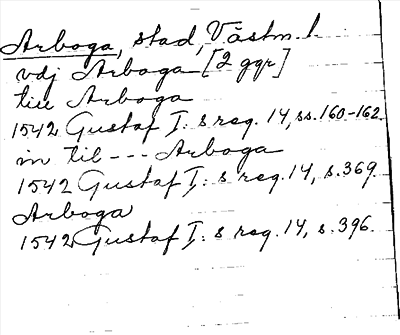 Arboga, stad, Västm. l.
vdj Arboga [2 ggr]
till Arboga
1542 Gustaf I:s reg. 14, ss. 160-162.
in til --- Arboga
1542 Gustaf I:s reg. 14, s. 369.
Arboga
1542 Gustaf I:s reg. 14, s. 396.